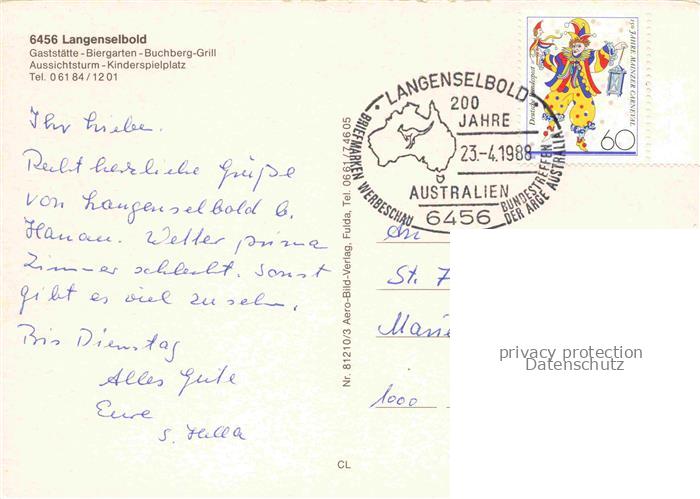 6456 Langenselbold
Gaststätte - Biergarten - Buchberg-Grill
Aussichtsturm - Kinderspielplatz
Tel. 0 61 84 / 12 01
Ihr Lieben.
Recht herzliche Grüße
von Langenselbold b.
Hanau. Wetter prima
Zimmer schlecht. Sonst
gibt es viel zu sehn.
Bis Dienstag
Alles Gute
Eure
S. Hella
Nr. 81210/3 Aero-Bild-Verlag, Fulda, Tel. 0661/74605
CL
LANGENSELBOLD
200
JAHRE
23.-4.1988
AUSTRALIEN
6456
BRIEFMARKEN WERBESCHAU
BUNDESTREFFEN
DER ARGE AUSTRALIA
Deutsche Bundespost
150 JAHRE MAINZER CARNEVAL
60
An
St.
Marie
1000
privacy protection
Datenschutz